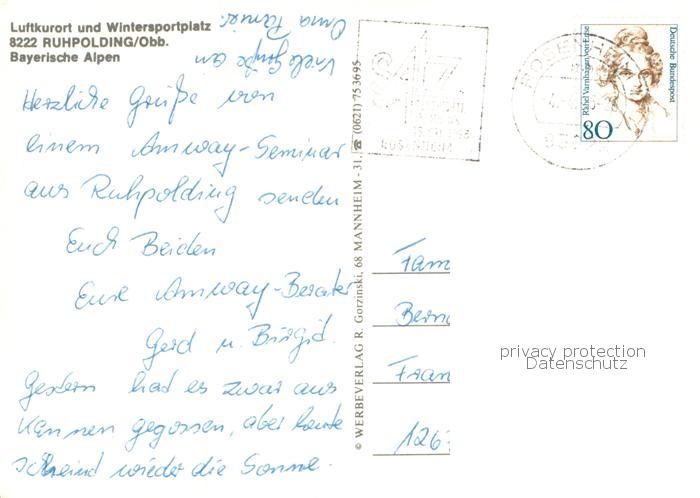 Luftkurort und Wintersportplatz
8222 RUHPOLDING/Obb.
Bayerische Alpen
Viele Grüße an
Oma
Herzliche Grüße von
einem Amway-Seminar
aus Ruhpolding senden
Euch Beiden
Eure Amway-Berater
Gerd u. Birgid.
Gestern hat es zwar aus
Kannen gegossen, aber heute
scheind wieder die Sonne.
© WERBEVERLAG R. Gorzinski, 68 MANNHEIM - 31, ☎ (0621) 753695
ROSENHEIM
ROSENHEIM
Rahel Varnhagen von Ense
Deutsche Bundespost
80
Fam
Bern
Fran
126
privacy protection
Datenschutz